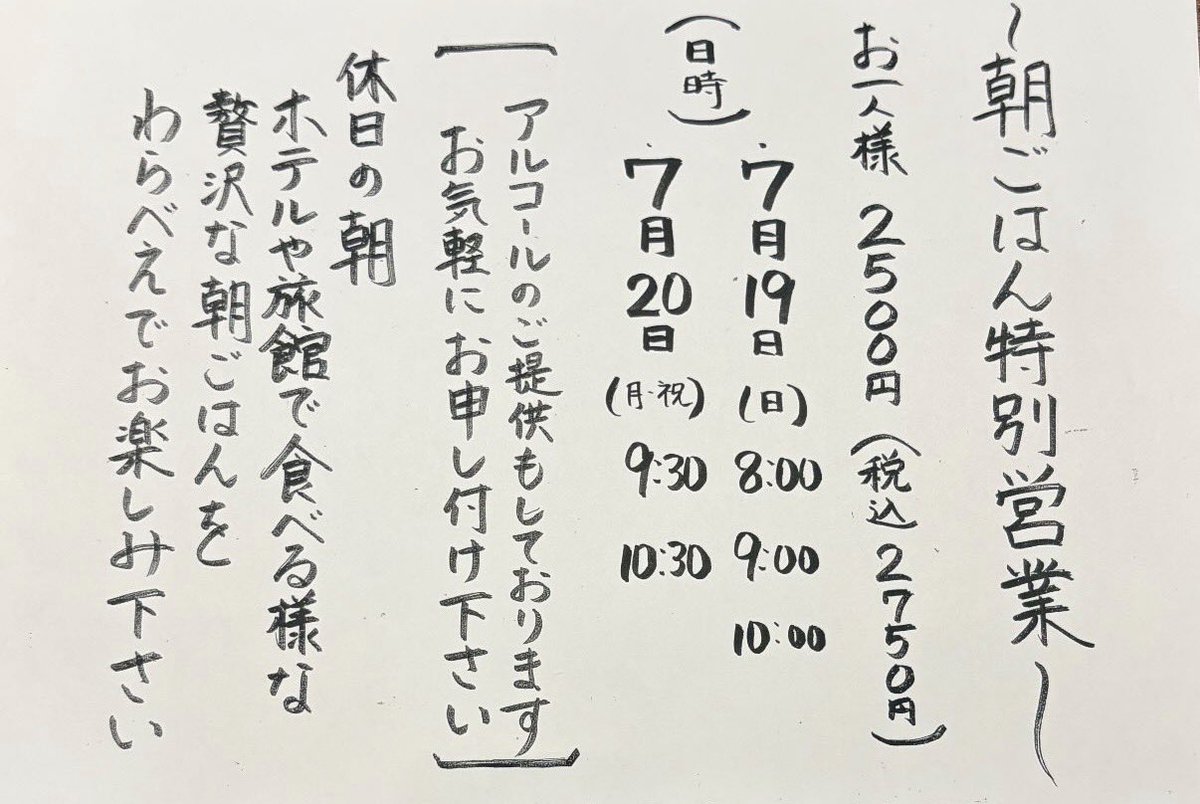 〜朝ごはん特別営業〜
お一人様 2500円(税込2750円)
(日時)
7月19日(日) 8:00 9:00 10:00
7月20日(月・祝) 9:30 10:30
「アルコールのご提供もしております
お気軽にお申し付け下さい」
休日の朝
ホテルや旅館で食べる様な
贅沢な朝ごはんを
わらべえでお楽しみ下さい